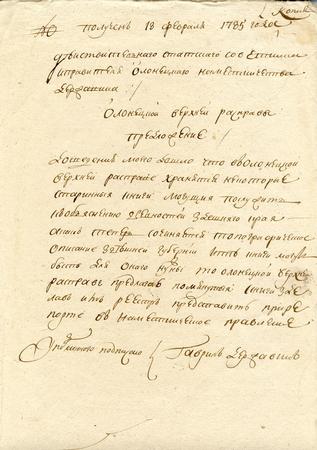 Копия
получено 18 февраля 1785 года
действительнаго статскаго советника
и правителя Олонецкаго наместничества
Державина
Олонецкой верхней расправы
предложение
До сведения моего дошло что во олонецкой
верхней расправе хранятся некоторые
старинные книги могущия послужить
ко объяснению древностей здешняго края
а как теперь сочиняется топографическое
описание здешней губернии и те книги могут
быть для онаго нужны то олонецкой верхней
расправе предлагаю помянутым книгам зде
лав им реестр представить при ре
порте в наместническое правление
подлинное подписано Гаврил Державин